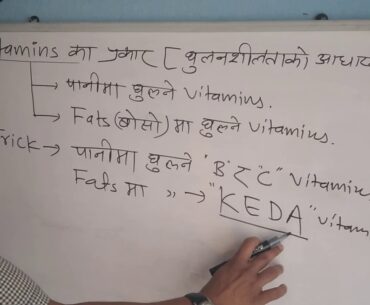 tamins का प्रकार [ घुलनशीलताको आधार
→ पानीमा घुलने Vitamins.
→ Fats (बोसो) मा घुलने Vitamins.
rick → पानीमा घुलने "B' र "C" Vitamins
Fats मा " → "KEDA" Vitam